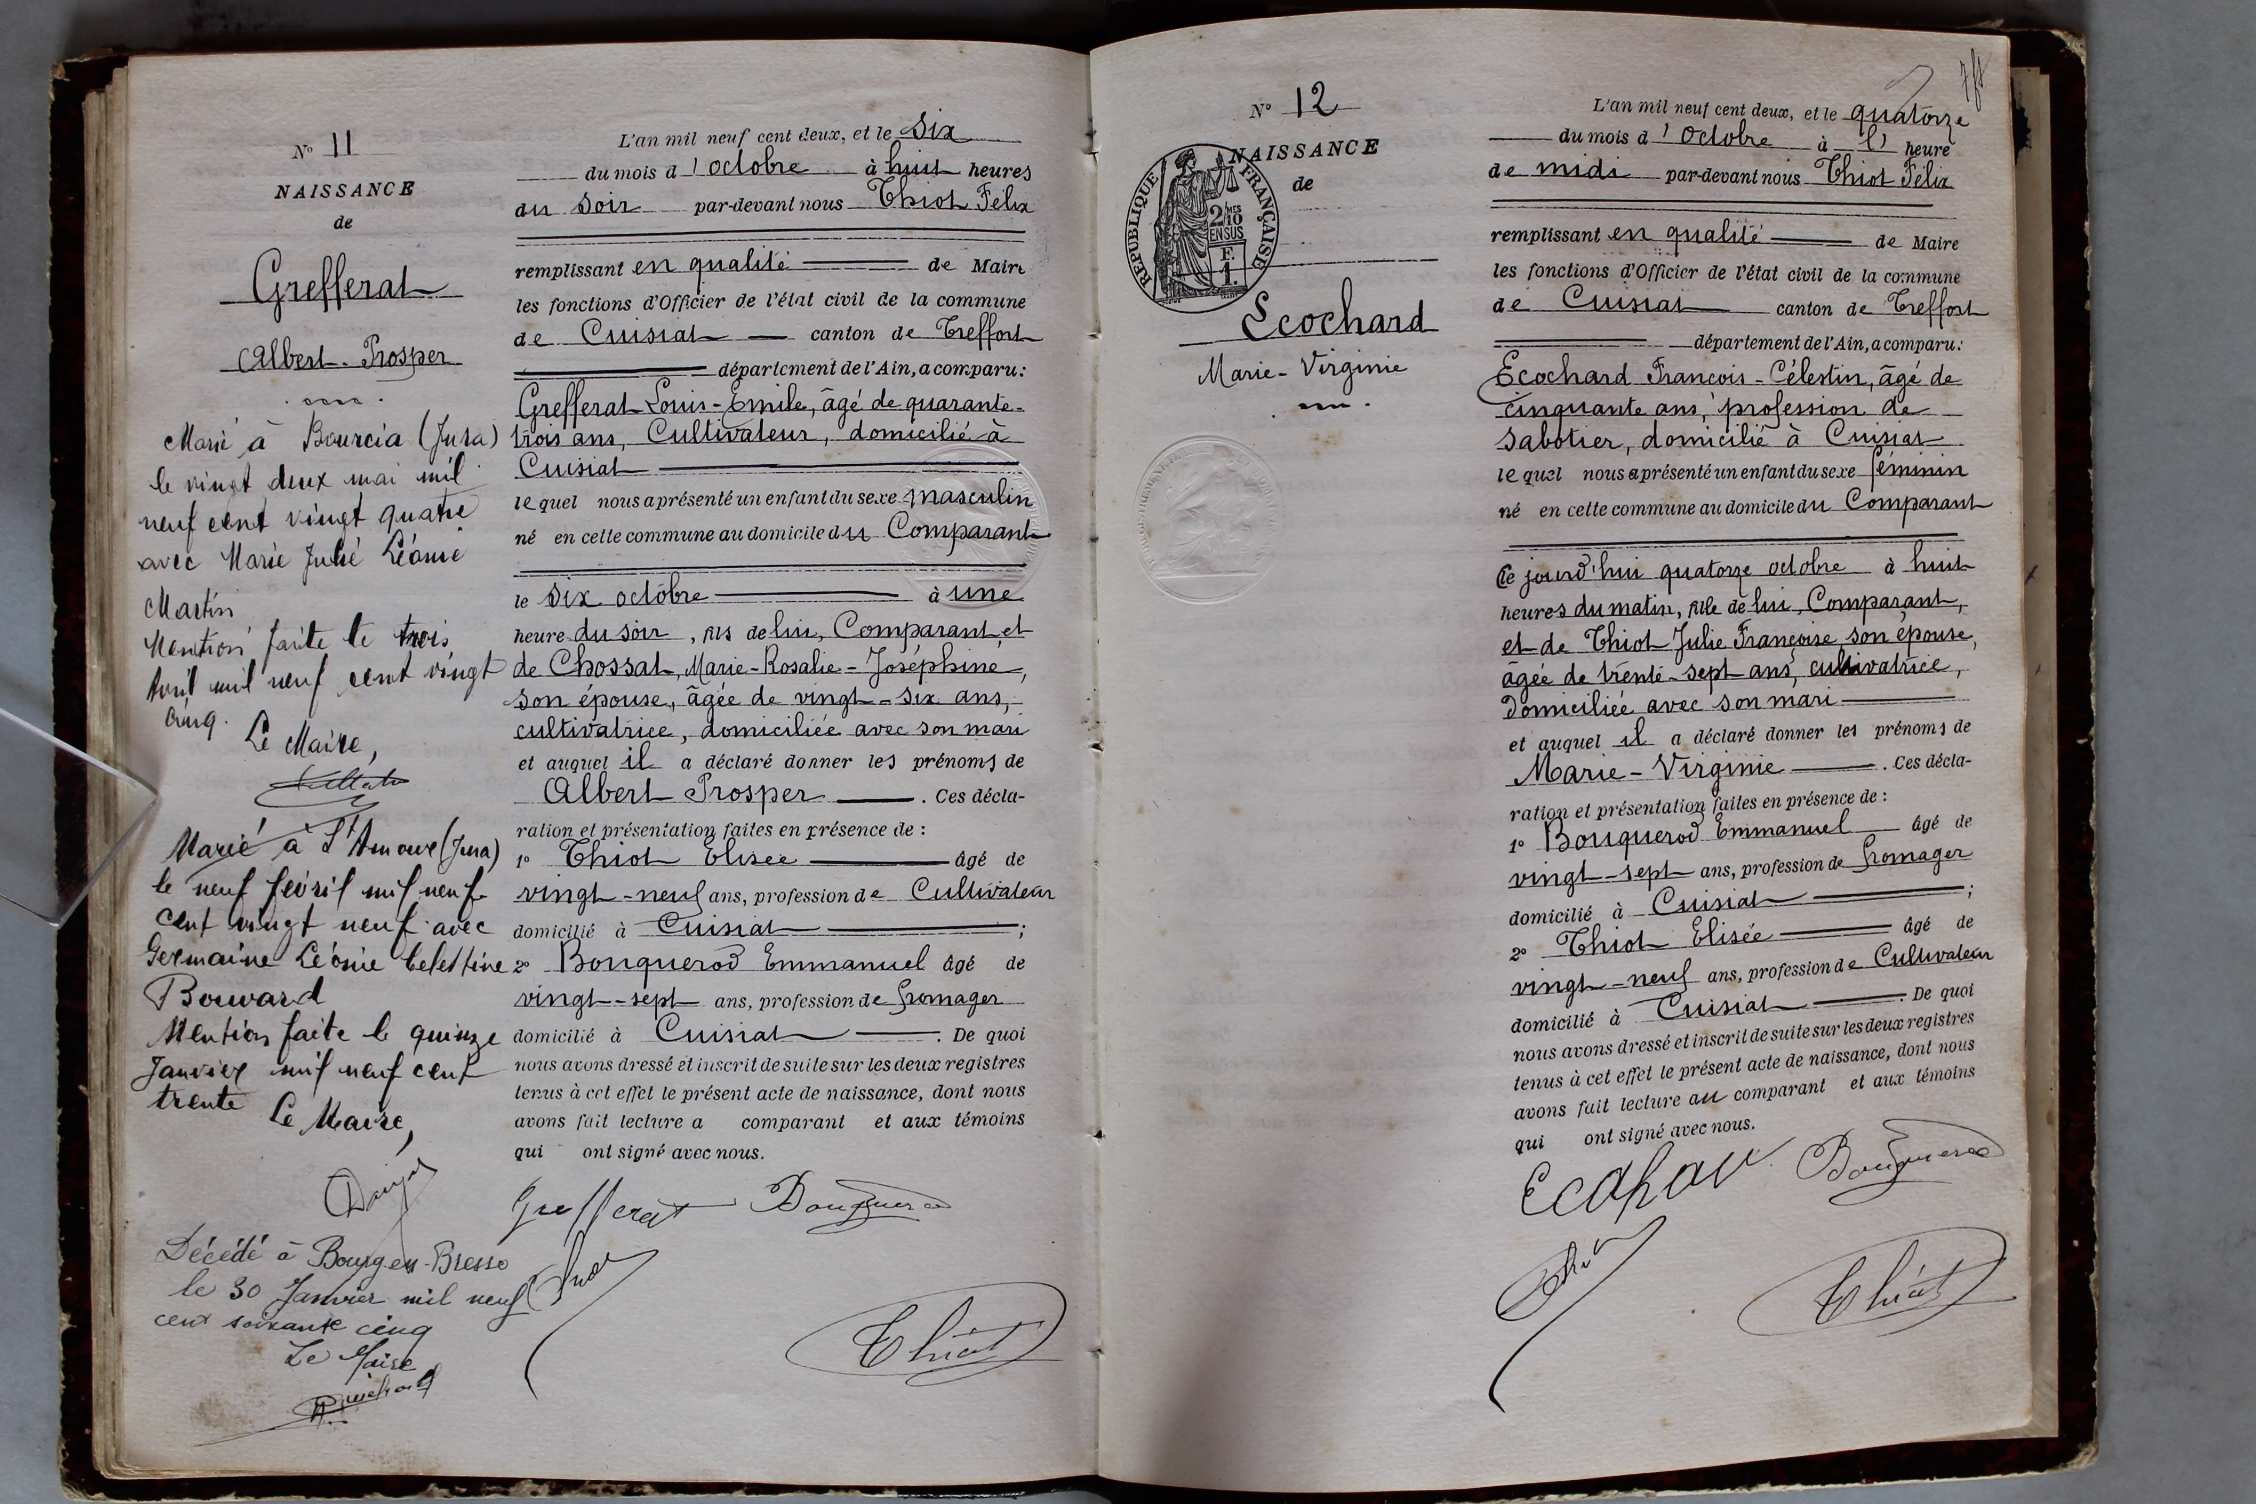 N° 11
NAISSANCE
de
Grefferat
Albert-Prosper
Marié à Bourcia (Jura)
le vingt deux mai mil
neuf cent vingt quatre
avec Marie Julie Léonie
Martin
Mention faite le trois
Avril mil neuf cent vingt
cinq.
Le Maire,
Marié à St Amour (Jura)
le neuf février mil neuf
cent vingt neuf avec
Germaine Léonie Celestine
Bouvard
Mention faite le quinze
Janvier mil neuf cent
trente
Le Maire,
Décédé à Bourg en Bresse
le 30 Janvier mil neuf
cent soixante cinq
Le Maire
L'an mil neuf cent deux, et le six
du mois d'octobre à huit heures
du soir par-devant nous Thiot Félix
remplissant en qualité de Maire
les fonctions d'Officier de l'état civil de la commune
de Cuisiat canton de Treffort
département de l'Ain, a comparu:
Grefferat Louis-Emile, âgé de quarante-
trois ans, Cultivateur, domicilié à
Cuisiat
lequel nous a présenté un enfant du sexe masculin
né en cette commune au domicile du Comparant
le six octobre à une
heure du soir, fils de lui, Comparant et
de Chossat, Marie-Rosalie-Joséphine,
son épouse, âgée de vingt-six ans,
cultivatrice, domiciliée avec son mari
et auquel il a déclaré donner les prénoms de
Albert Prosper. Ces décla-
ration et présentation faites en présence de:
1° Thiot Elisée âgé de
vingt-neuf ans, profession de Cultivateur
domicilié à Cuisiat;
2° Bouquerod Emmanuel âgé de
vingt-sept ans, profession de fromager
domicilié à Cuisiat. De quoi
nous avons dressé et inscrit de suite sur les deux registres
tenus à cet effet le présent acte de naissance, dont nous
avons fait lecture a comparant et aux témoins
qui ont signé avec nous.
Grefferat Bouquerod
Thiot
N° 12
NAISSANCE
de
REPUBLIQUE FRANÇAISE
2/10 MES
EN SUS
F.
1.
Ecochard
Marie-Virginie
L'an mil neuf cent deux, et le quatorze
du mois d'octobre à l' heure
de midi par-devant nous Thiot Félix
remplissant en qualité de Maire
les fonctions d'Officier de l'état civil de la commune
de Cuisiat canton de Treffort
département de l'Ain, a comparu:
Ecochard François-Célestin, âgé de
cinquante ans, profession de
sabotier, domicilié à Cuisiat
lequel nous a présenté un enfant du sexe féminin
né en cette commune au domicile du Comparant
Ce jourd'hui quatorze octobre à huit
heures du matin, fille de lui, Comparant,
et de Thiot Julie Françoise son épouse,
âgée de trente-sept ans, cultivatrice,
domiciliée avec son mari
et auquel il a déclaré donner les prénoms de
Marie-Virginie. Ces décla-
ration et présentation faites en présence de:
1° Bouquerod Emmanuel âgé de
vingt-sept ans, profession de fromager
domicilié à Cuisiat;
2° Thiot Elisée âgé de
vingt-neuf ans, profession de Cultivateur
domicilié à Cuisiat. De quoi
nous avons dressé et inscrit de suite sur les deux registres
tenus à cet effet le présent acte de naissance, dont nous
avons fait lecture au comparant et aux témoins
qui ont signé avec nous.
Bouquerod
Thiot